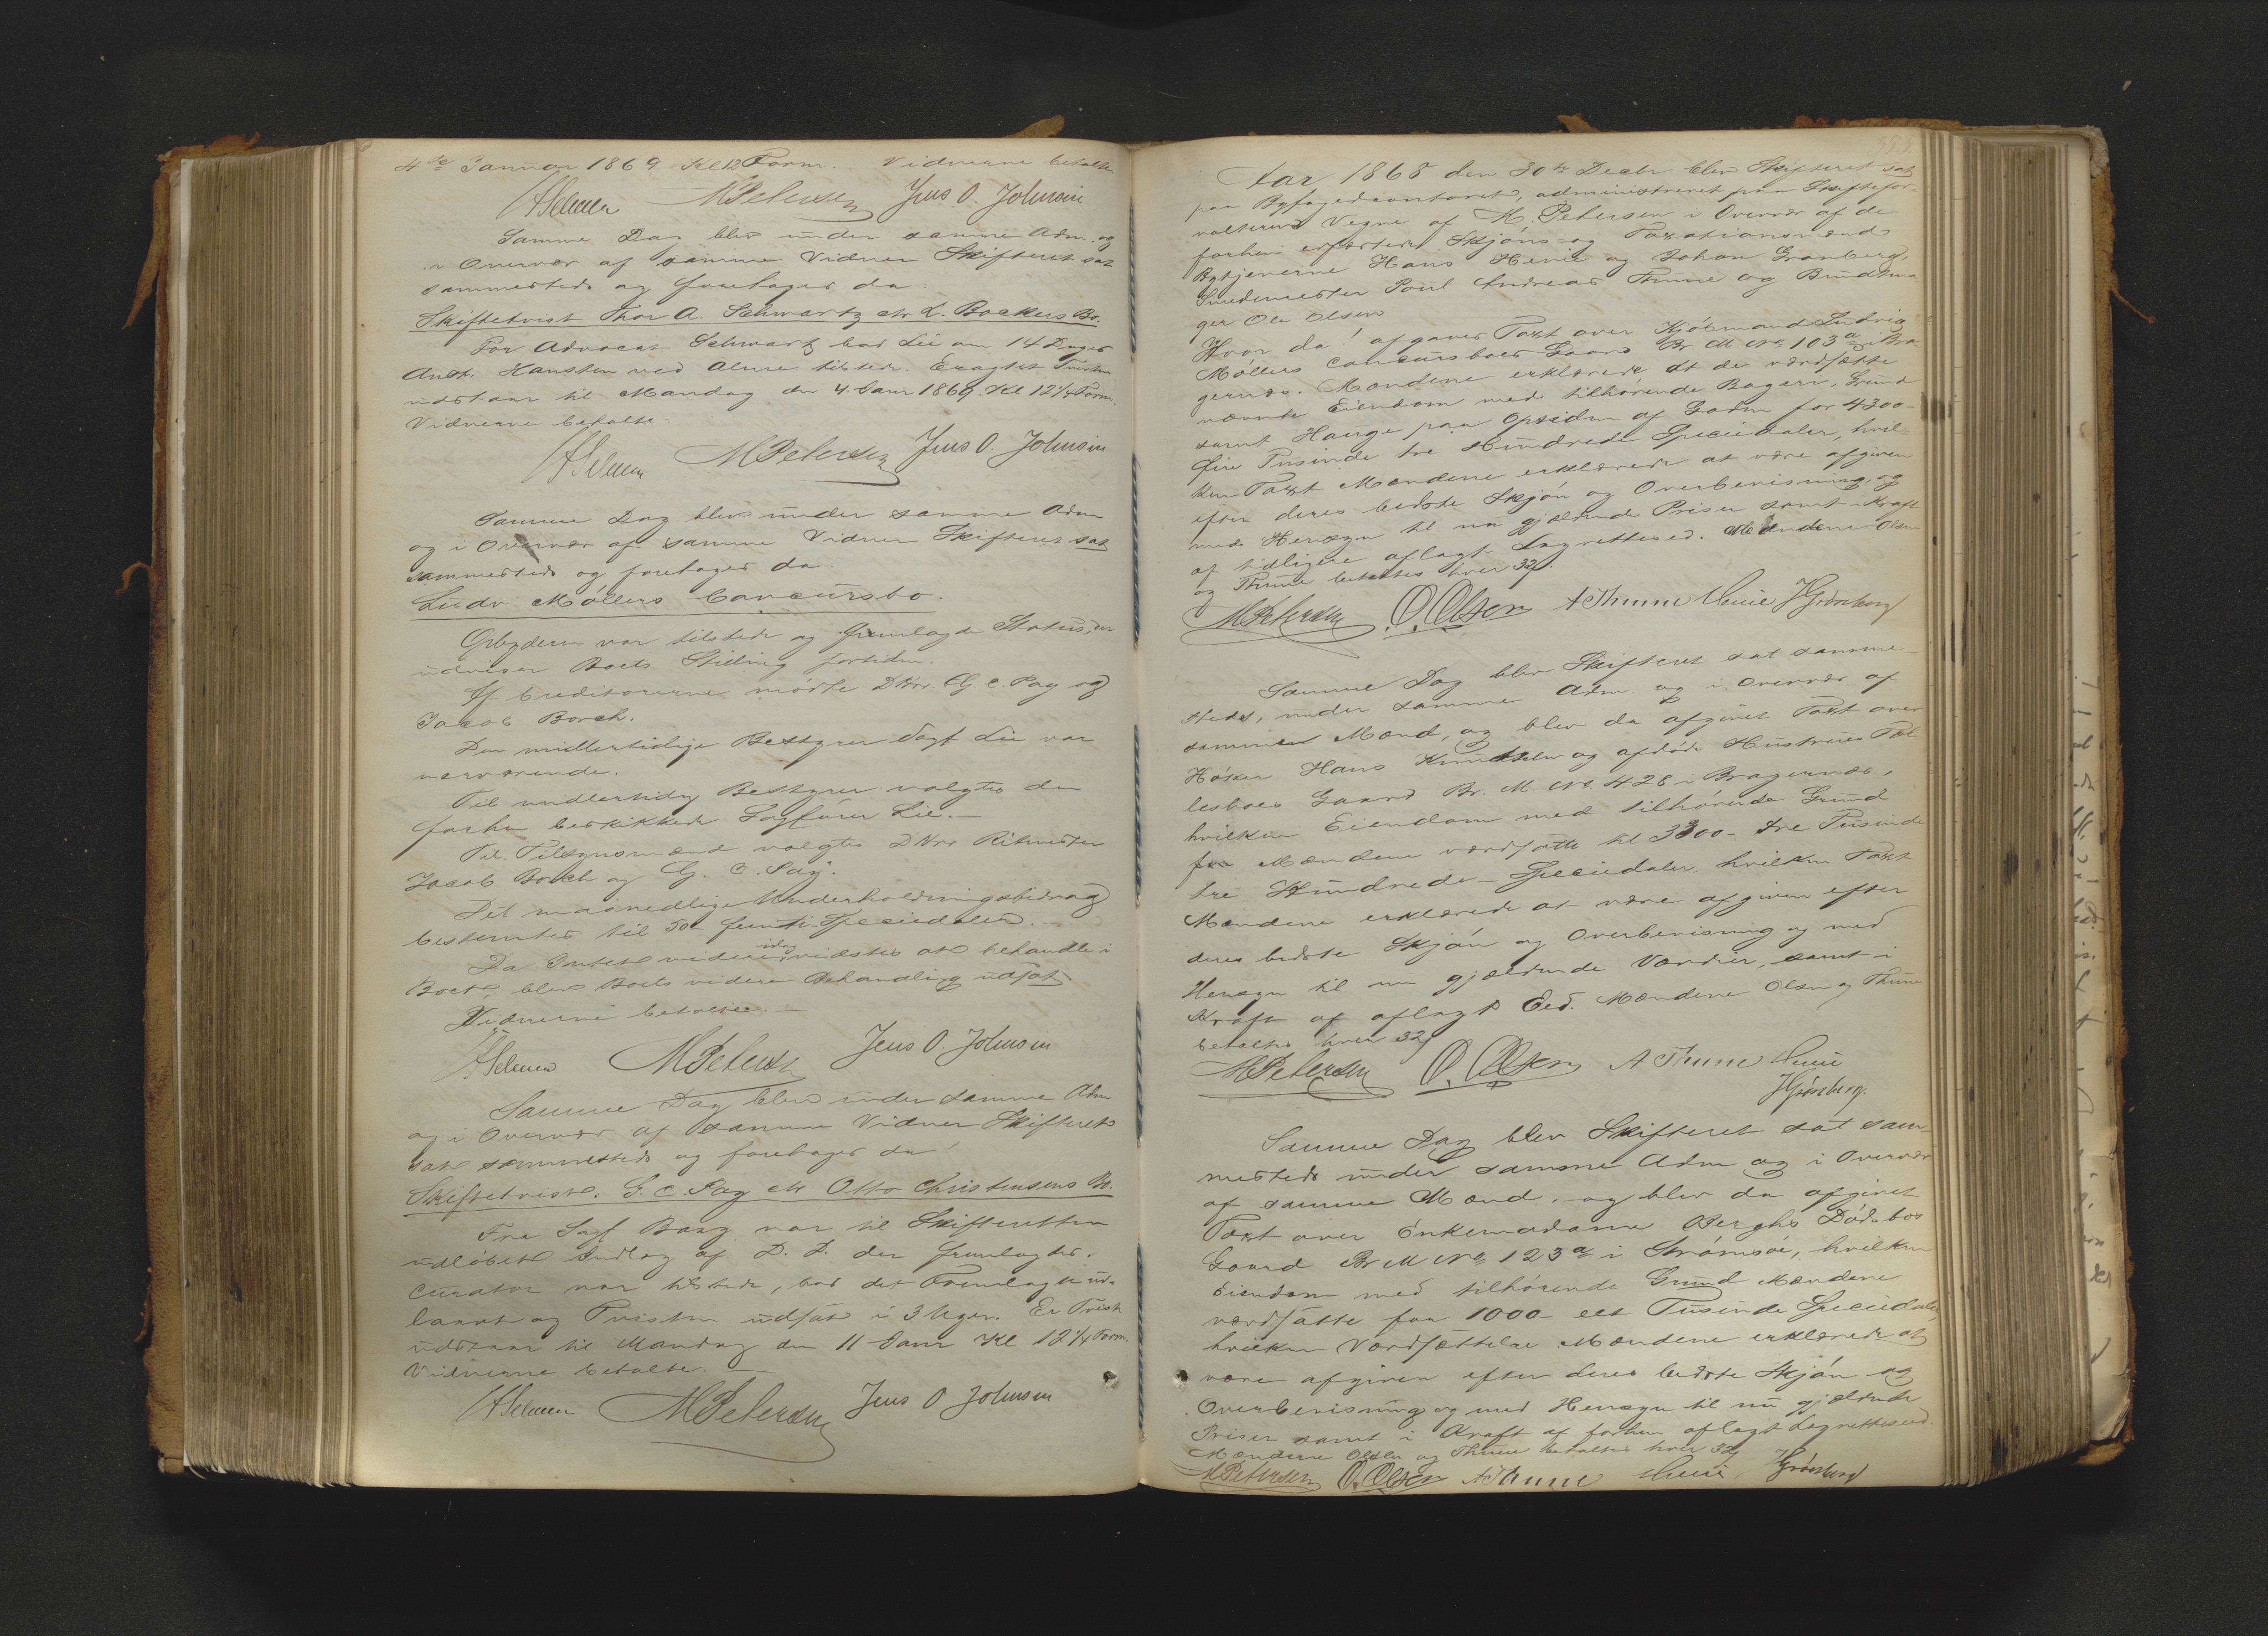 4de Januar 1869 Kl 12 Form. Vidnerne betalte
MPetersen Jens O. Johnsen
Samme Dag blev under samme Adm. og
i Overvær af samme Vidner Skifteret sat
sammesteds og foretages da
Skiftetvist Thor A. Schwartz ctr L. Backers Bo.
For Advocat Schwartz bad Lie om 14 Dager
Ansf. Hansten ved Alme tilstede. Eragtet Tvisten
udstaar til Mandag den 4. Janr 1869 Kl 12 1/4 Form.
Vidnerne betalte.
MPetersen Jens O. Johnsen
Samme Dag blev under samme Adm
og i Overvær af samme Vidner Skifteret sat
sammesteds og foretages da
Ludv Møllers Concursbo.
Opbyderen var tilstede og fremlagde Status, der
udviser Boets Stilling fortiden.
Af Creditorerne mødte DHrr G. C. Pay og
Jacob Borch.
Den midlertidige Bestyrer Sagf Lie var
nærværende.
Til midlertidig Bestyrer valgtes den
forhen beskikkede Sagfører Lie.—
Til Tilsynsmænd valgtes DHrr Ritmester
Jacob Borch og G. C. Pay.
Det maanedlige Underholdningsbidrag
bestemtes til 50 femti Speciedaler.—
Da Intet videre idag vidstes at behandle i
Boet, blev Boets videre Behandling udsat.
Vidnerne betalte.—
MPetersen Jens O. Johnsen
Samme Dag blev under samme Adm
og i Overvær af samme Vidner Skifteret
sat sammesteds og foretages da
Skiftetvist. G. C. Pay ctr Otto Christensens Bo.
Fra Sagf Bang var til Skifteretten
indløbet Indlæg af D. D. der fremlagdes.
Curator var tilstede, bad det Fremlagte ud-
laant og Tvisten udsat i 3 Uger. Er Tvist
udstaar til Mandag den 11 Janr Kl 12 1/4 Form.
Vidnerne betalte.—
MPetersen Jens O Johnsen
353.
Aar 1868 den 30te Decbr blev Skifteret sat
paa Byfogedcontoret, administreret paa Skiftefor-
valterens Vegne af M. Petersen i Overvær af de
forhen Skjøns- og Taxationsmænd
Bytjenerne Hans Henie og Johan Grønberg,
Smedemester Poul Andreas Thune og Bundtma-
ger Ole Olsen
Hvor da! afgaves Taxt over Kjøbmand Ludvig
Møllers Concursboes Gaard Br. M No 103a i Bra
gernæs. Mændene erklærede at de værdsætte
nævnte Eiendom med tilhørende Bageri, Grund
samt Hauge paa Opsiden af Gaden for 4300-
fire Tusinde tre Hundrede Speciedaler, hvil-
ken Taxt Mændene erklærede at være afgiven
efter deres bedste Skjøn og Overbevisning og
med Hensyn til nu gjældende Priser samt i Kraft
af tidligere aflagt Lagrettesed. Mændene Olsen
og Thune betaltes hver 32ß.
MPetersen O. Olsen AThune Henie JGrønberg
Samme Dag blev Skifteret sat samme-
steds, under samme Adm. og i Overvær af
samme Mænd, og blev da afgivet Taxt over
Høker Hans Knudsen og afdøde Hustrues Fæl
lesboes Gaard Br. M No 428 i Bragernæs,
hvilken Eiendom med tilhørende Grund
Mændene værdsatte til 3300- tre Tusinde
tre Hundrede Speciedaler, hvilken Taxt
Mændene erklærede at være afgiven efter
deres bedste Skjøn og Overbevisning og med
Hensyn til nu gjældende Værdier, samt i
Kraft af aflagt Eed. Mændene Olsen og Thune
betaltes hver 32ß
MPetersen O. Olsen AThune Henie
JGrønberg.
Samme Dag blev Skifteret sat sam-
mesteds under samme Adm og i Overvær
af samme Mænd, og blev da afgivet
Taxt over Enkemadame Berghs Dødsbos
Gaard Br M No 123a i Strømsøe, hvilken
Eiendom med tilhørende Grund Mændene
værdsatte for 1000- ett Tusinde Speciedaler,
hvilken Værdsættelse Mændene erklærede at
være afgiven efter deres bedste Skjøn og
Overbevisning og med Hensyn til nu gjældende
Priser samt i Kraft af forhen aflagt Lagrettesed.
Mændene Olsen og Thune betaltes hver 32ß
MPetersen O. Olsen AThune Henie JGrønberg